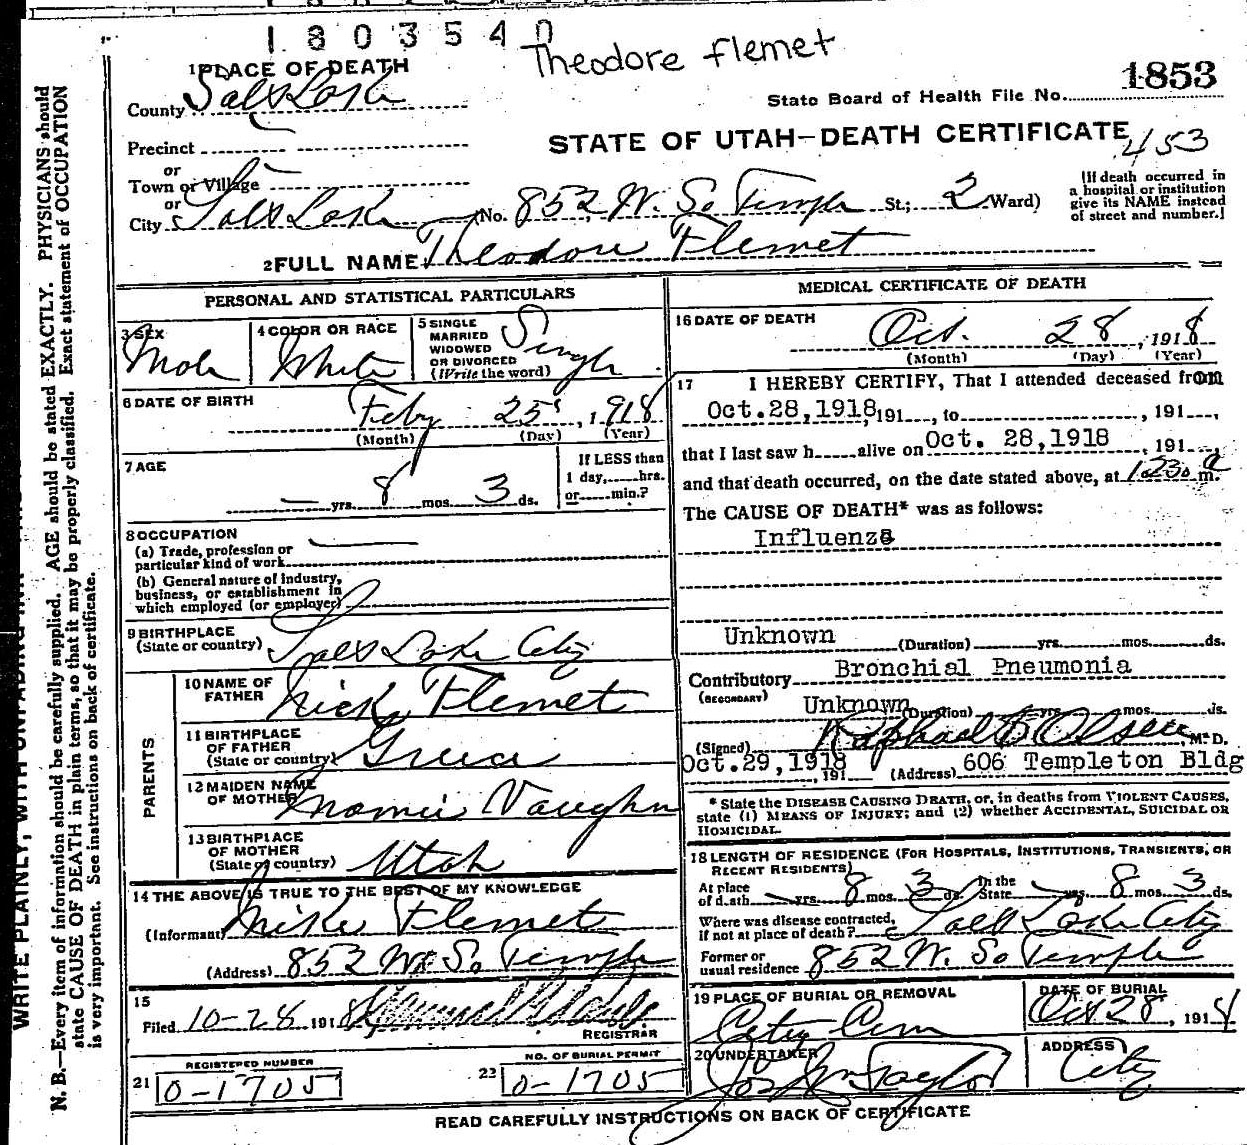 1 8 0 3 5 4 0
Theodore Flemet
1 PLACE OF DEATH
County Salt Lake
State Board of Health File No. 1853
STATE OF UTAH—DEATH CERTIFICATE
453
Precinct
or
Town or Village
or
City Salt Lake (No. 852 W. So Temple St.; 2 Ward)
[If death occurred in
a hospital or institution
give its NAME instead
of street and number.]
2 FULL NAME Theodore Flemet
PERSONAL AND STATISTICAL PARTICULARS
3 SEX
Male
4 COLOR OR RACE
White
5 SINGLE
MARRIED
WIDOWED
OR DIVORCED
(Write the word)
Single
6 DATE OF BIRTH
Feby 25, 1918
(Month) (Day) (Year)
7 AGE
— yrs. 8 mos. 3 ds.
If LESS than
1 day, hrs.
or min.?
8 OCCUPATION
(a) Trade, profession or
particular kind of work
(b) General nature of industry,
business, or establishment in
which employed (or employer)
9 BIRTHPLACE
(State or country) Salt Lake City
PARENTS
10 NAME OF
FATHER Nick Flemet
11 BIRTHPLACE
OF FATHER
(State or country) Greece
12 MAIDEN NAME
OF MOTHER Naomie Vaughn
13 BIRTHPLACE
OF MOTHER
(State or country) Utah
14 THE ABOVE IS TRUE TO THE BEST OF MY KNOWLEDGE
(Informant) Mike Flemet
(Address) 852 W. So Temple
15
Filed 10-28 1918
REGISTRAR
REGISTERED NUMBER
21 0-1705
NO. OF BURIAL PERMIT
22 0-1705
MEDICAL CERTIFICATE OF DEATH
16 DATE OF DEATH
Oct. 28, 1918
(Month) (Day) (Year)
17 I HEREBY CERTIFY, That I attended deceased from
Oct.28,1918, 191 , to , 191 ,
that I last saw h alive on Oct. 28,1918 , 191 ,
and that death occurred, on the date stated above, at 1230 a m.
The CAUSE OF DEATH* was as follows:
Influenza
Unknown (Duration) yrs. mos. ds.
Contributory Bronchial Pneumonia
(SECONDARY) Unknown (Duration) yrs. mos. ds.
(Signed) Raphael S Olsen, M. D.
Oct.29,1918, 191 (Address) 606 Templeton Bldg
* State the DISEASE CAUSING DEATH, or, in deaths from VIOLENT CAUSES,
state (1) MEANS OF INJURY; and (2) whether ACCIDENTAL, SUICIDAL OR
HOMICIDAL.
18 LENGTH OF RESIDENCE (FOR HOSPITALS, INSTITUTIONS, TRANSIENTS, OR
RECENT RESIDENTS)
At place
of death yrs. 8 mos. 3 ds. In the
State yrs. 8 mos. 3 ds.
Where was disease contracted,
if not at place of death? Salt Lake City
Former or
usual residence 852 W. So Temple
19 PLACE OF BURIAL OR REMOVAL
City Cem
DATE OF BURIAL
Oct 28, 191
20 UNDERTAKER
Jos Wm Taylor
ADDRESS
City
READ CAREFULLY INSTRUCTIONS ON BACK OF CERTIFICATE
WRITE PLAINLY, WITH UNFADING INK
N. B.—Every item of information should be carefully supplied. AGE should be stated EXACTLY. PHYSICIANS should
state CAUSE OF DEATH in plain terms, so that it may be properly classified. Exact statement of OCCUPATION
is very important. See instructions on back of certificate.